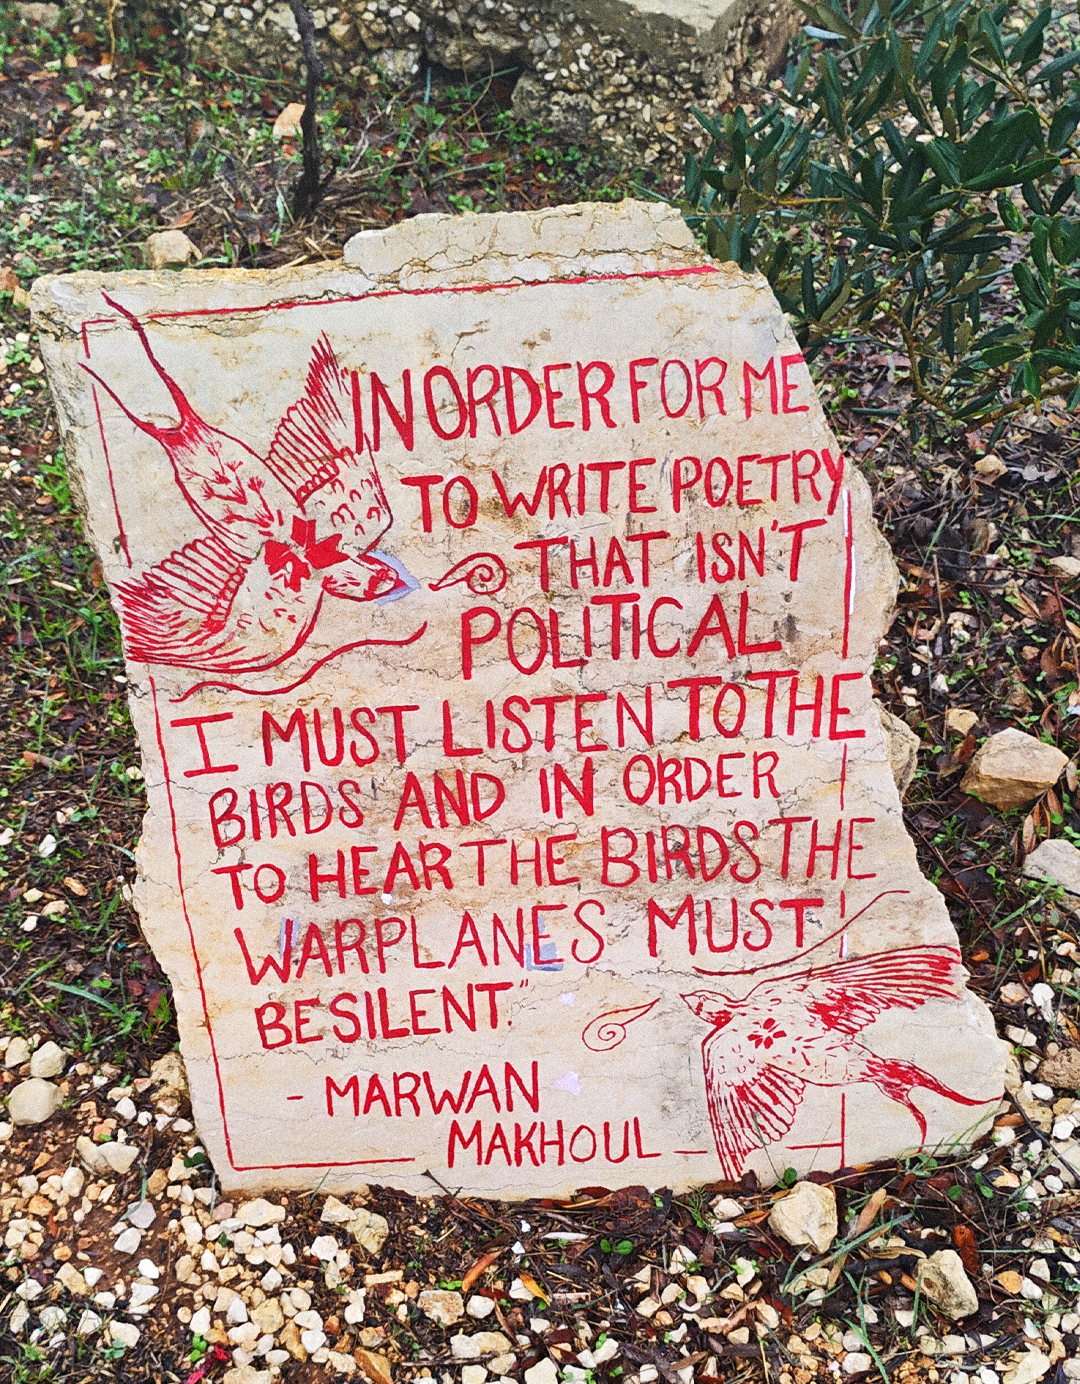 "IN ORDER FOR ME
TO WRITE POETRY
THAT ISN'T
POLITICAL
I MUST LISTEN TO THE
BIRDS AND IN ORDER
TO HEAR THE BIRDS THE
WARPLANES MUST
BE SILENT."
- MARWAN
MAKHOUL -